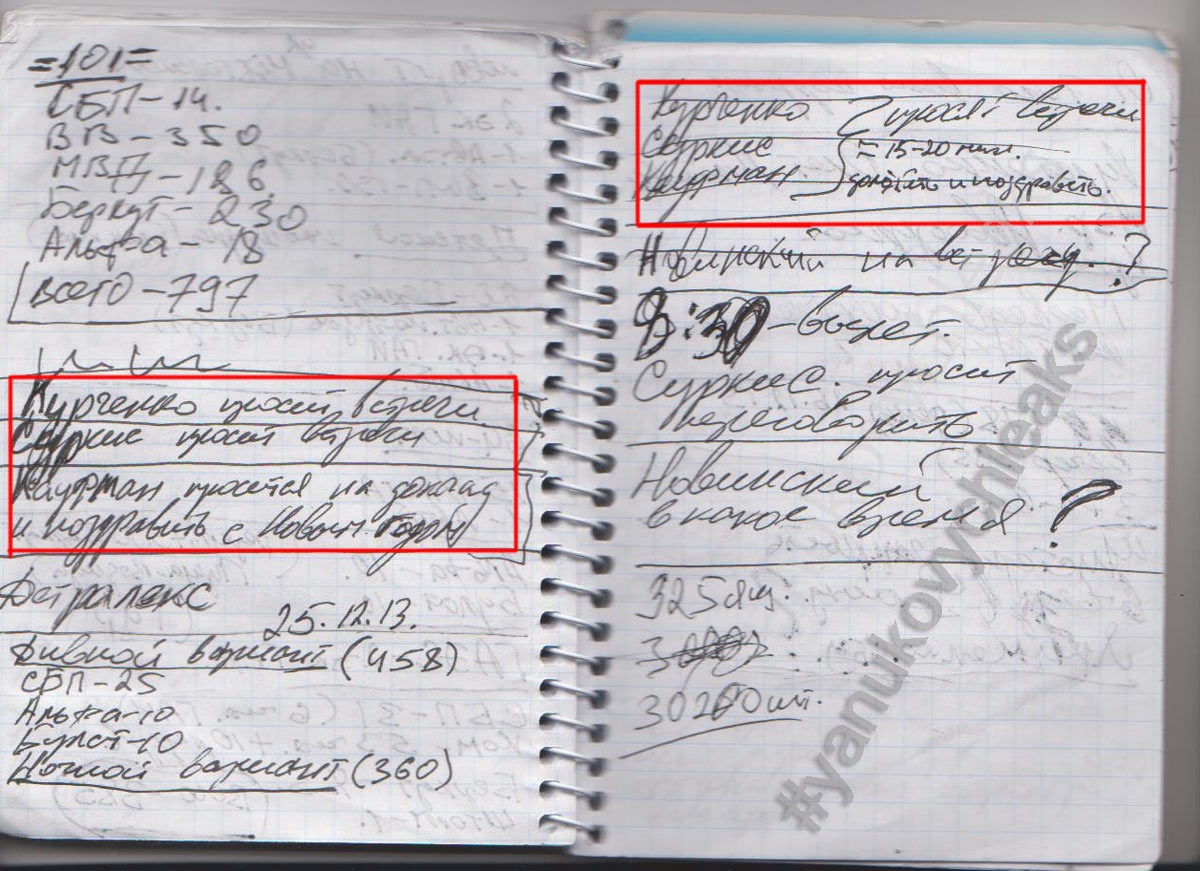 =101=
СБП-14.
ВВ-350
МВД-186.
Беркут-230
Альфа-18
Всего-797
Курченко просит встречи
Суркис просит встречи
Кауфман просится на доклад
и поздравить с Новым годом
Детралекс
25.12.13.
Дивной вариант (458)
СБП-25
Альфа-10
Булат-10
Ночной вариант (360)
Курченко просят встречи
Суркис = 15-20 мин.
Кауфман. доложить и поздравить.
Новинский на встречу. ?
8:30-вылет.
Суркис. просит
переговорить
Новинский
в какое время ?
325ящ.
30200шт.
#yanukovychleaks